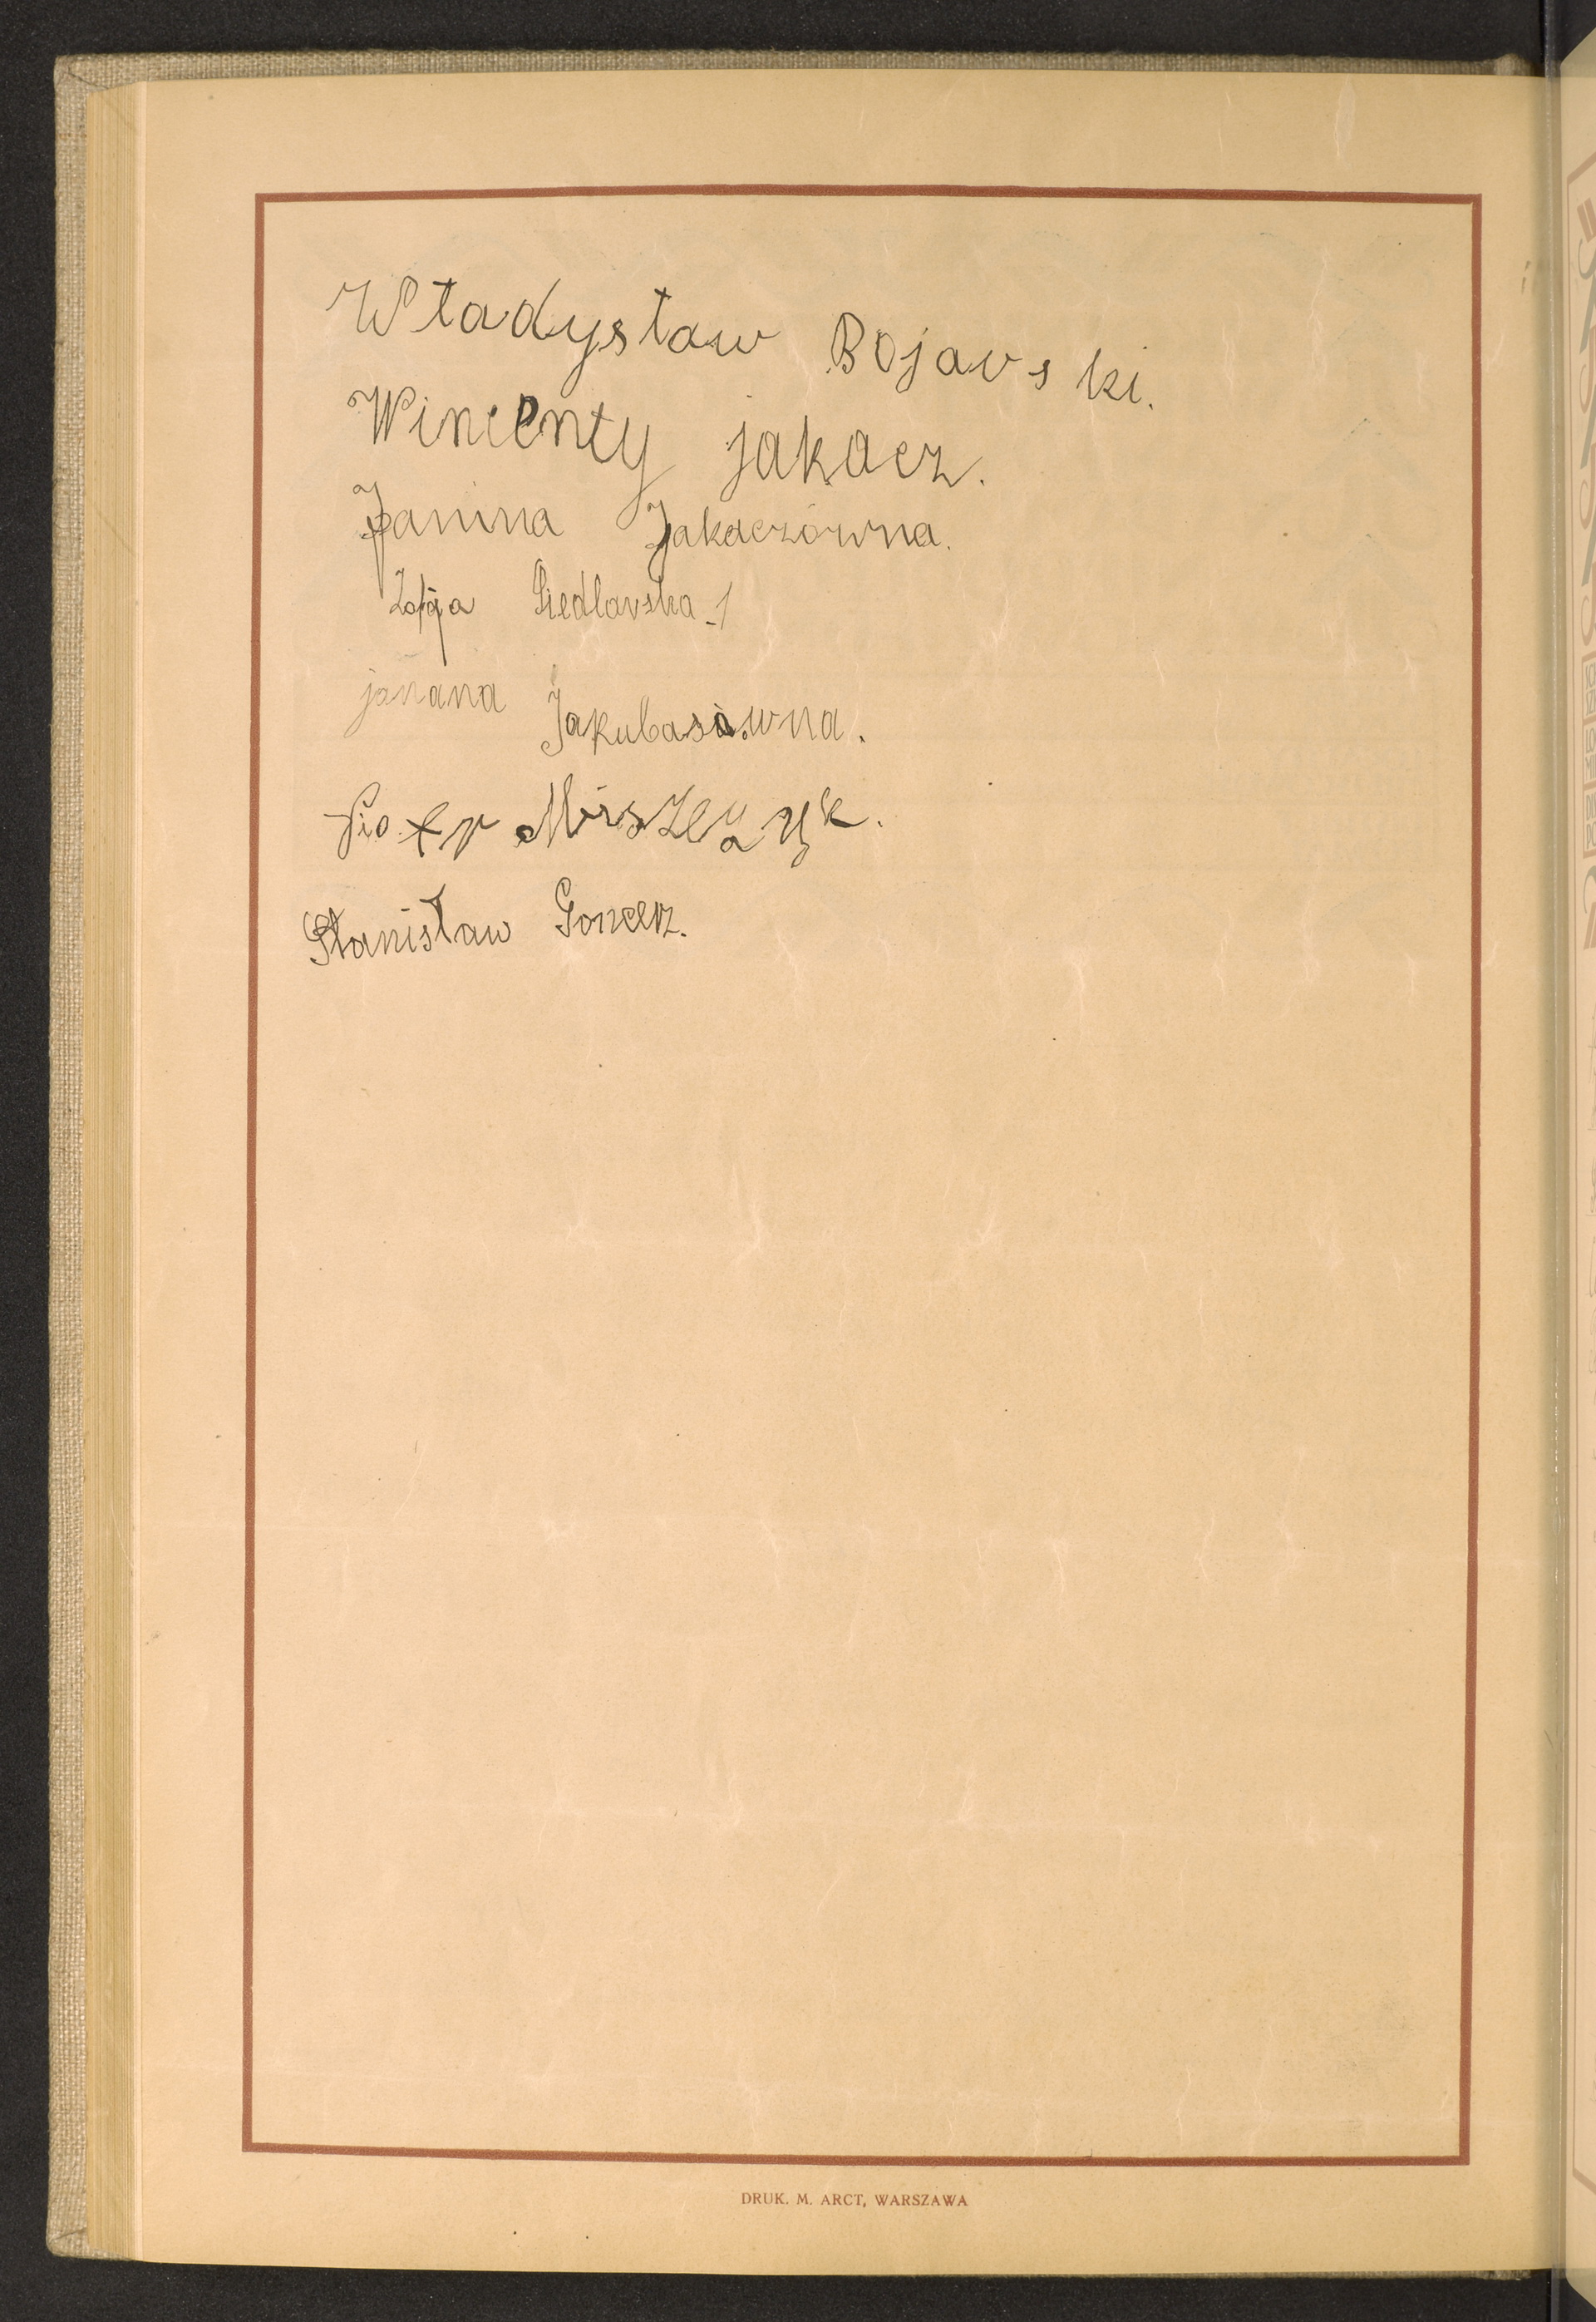 Władysław Bojarski.
Wincenty jakacz.
Janina Jakaczówna.
Zofja Siedlarska
janana Jakubasówna.
Piotr Miszczyk.
Stanisław Goncerz.
DRUK. M. ARCT, WARSZAWA